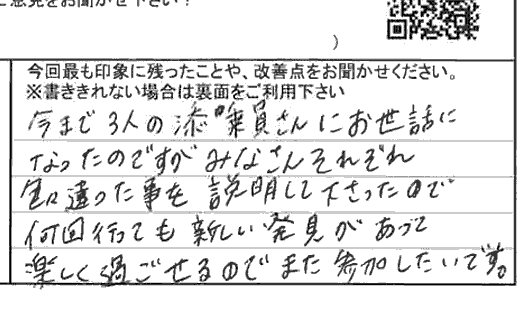 ご意見をお聞かせ下さい！
）
今回最も印象に残ったことや、改善点をお聞かせください。
※書ききれない場合は裏面をご利用下さい
今まで3人の添乗員さんにお世話に
なったのですがみなさんそれぞれ
違った事を説明して下さったので
何回行っても新しい発見があって
楽しく過ごせるのでまた参加したいです。